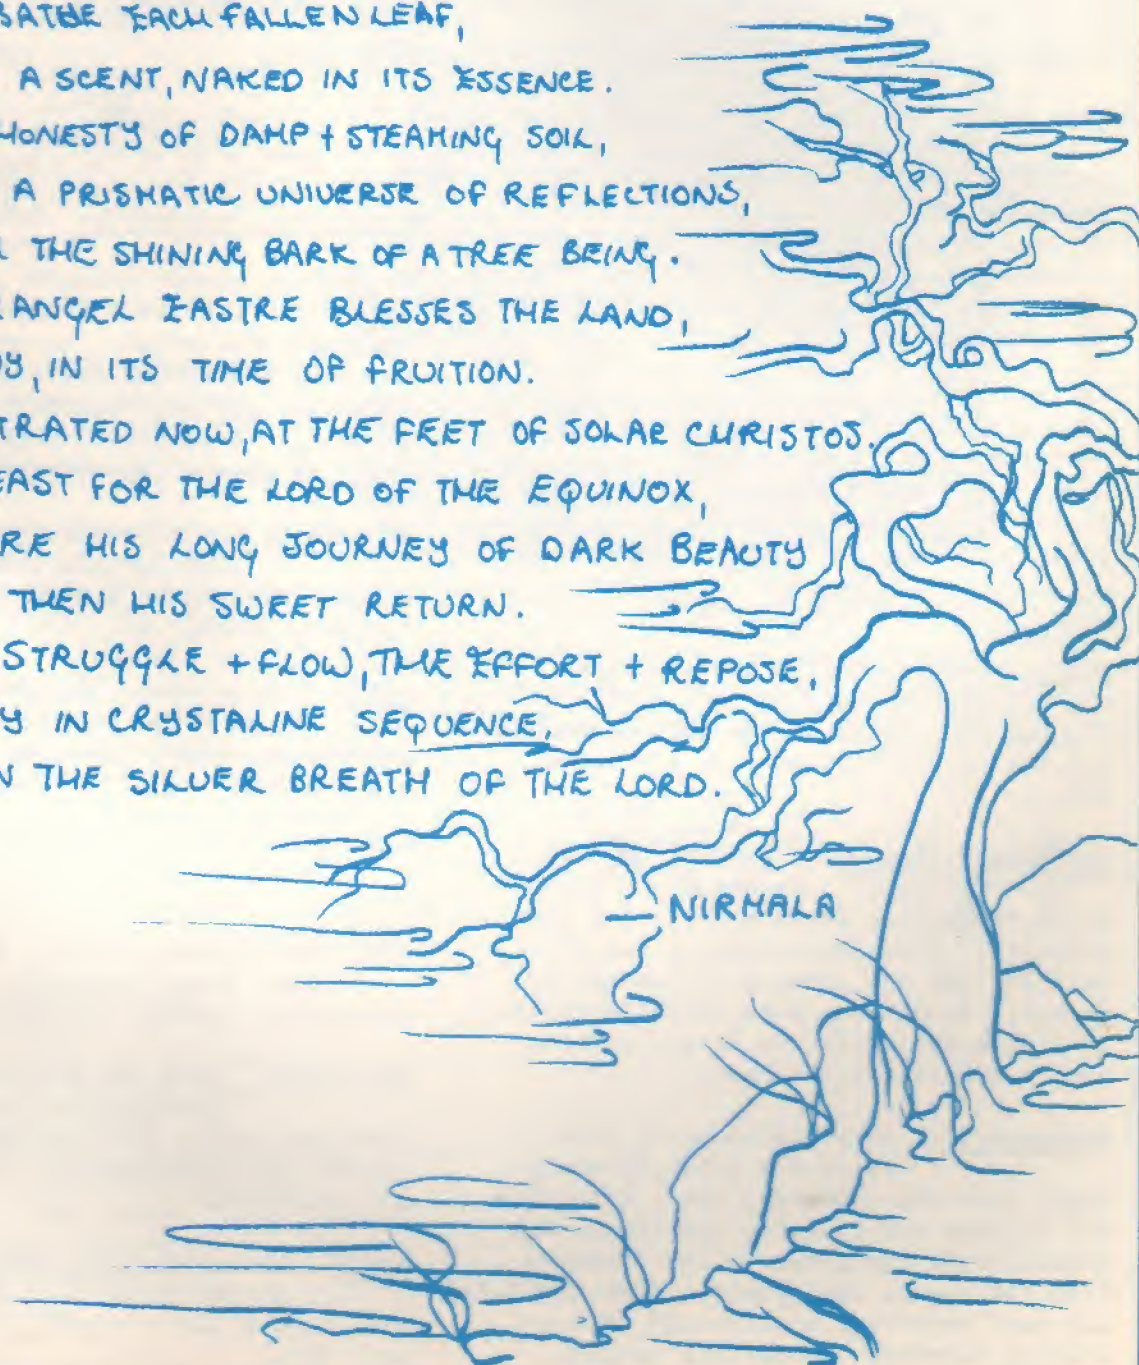 BATHE EACH FALLEN LEAF,
A SCENT, NAKED IN ITS ESSENCE.
HONESTY OF DAMP + STEAMING SOIL,
A PRISMATIC UNIVERSE OF REFLECTIONS,
THE SHINING BARK OF A TREE BEING.
ANGEL EASTRE BLESSES THE LAND,
IN ITS TIME OF FRUITION.
TRATED NOW, AT THE FEET OF SOLAR CHRISTOS.
EAST FOR THE LORD OF THE EQUINOX,
RE HIS LONG JOURNEY OF DARK BEAUTY
THEN HIS SWEET RETURN.
STRUGGLE + FLOW, THE EFFORT + REPOSE,
Y IN CRYSTALINE SEQUENCE,
N THE SILVER BREATH OF THE LORD.
— NIRMALA